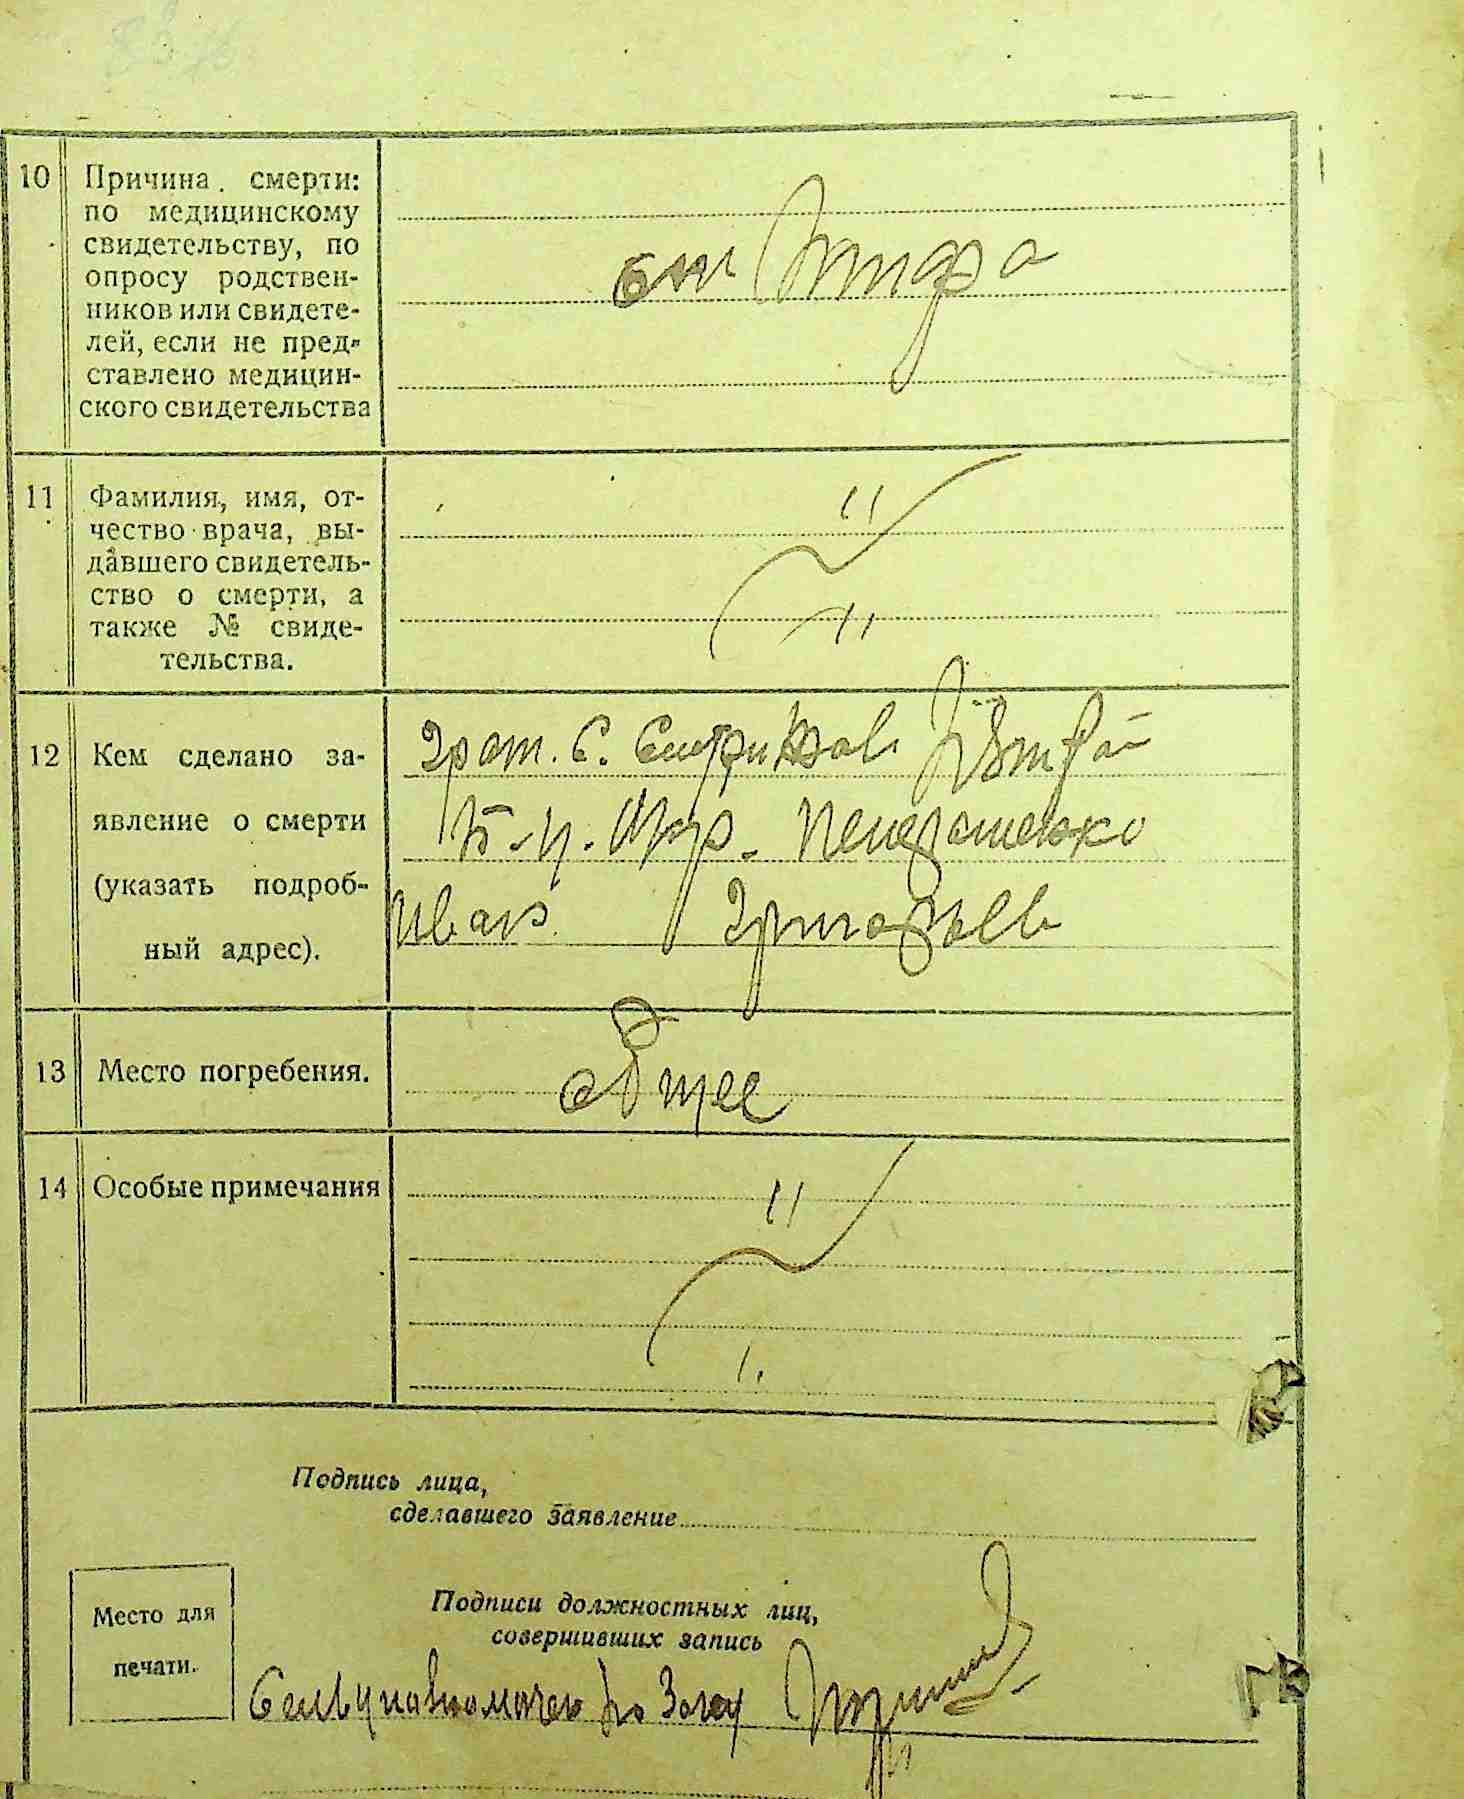 10 Причина смерти:
по медицинскому
свидетельству, по
опросу родствен-
ников или свидете-
лей, если не пред-
ставлено медицин-
ского свидетельства
от тифа
11 Фамилия, имя, от-
чество врача, вы-
давшего свидетель-
ство о смерти, а
также № свиде-
тельства.
12 Кем сделано за-
явление о смерти
(указать подроб-
ный адрес).
с.
Иван Григорьев
13 Место погребения.
общее
14 Особые примечания
Подпись лица,
сделавшего заявление
Место для
печати.
Подписи должностных лиц,
совершивших запись
по Загсу